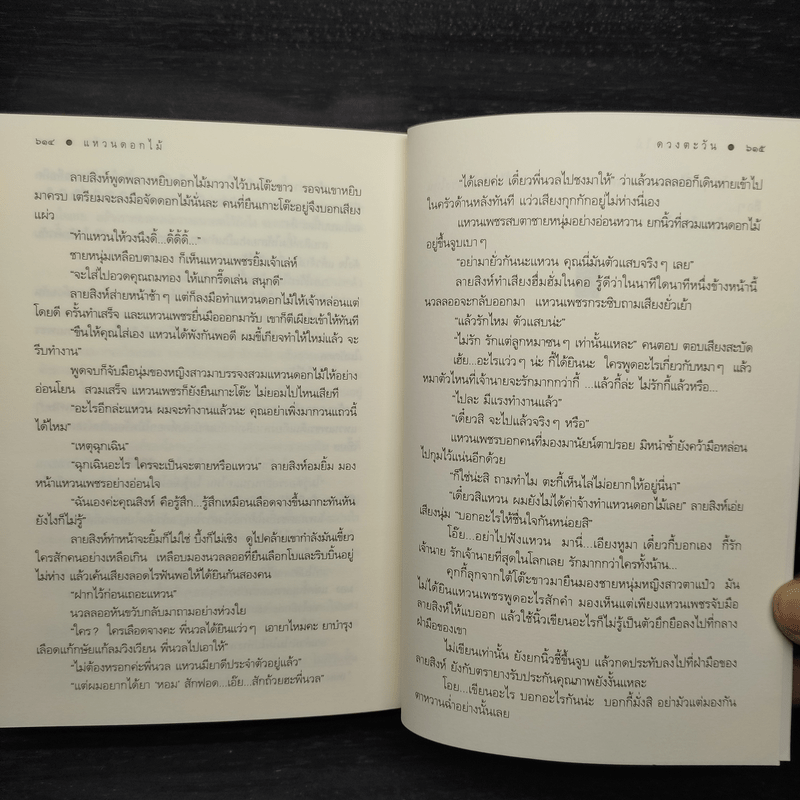 ๖๑๔ ● แหวนดอกไม้
ลายสิงห์พูดพลางหยิบดอกไม้มาวางไว้บนโต๊ะขาว รอจนเขาหยิบ
มาครบ เตรียมจะลงมือจัดดอกไม้นั่นละ คนที่ยืนเกาะโต๊ะอยู่จึงบอกเสียง
แผ่ว
“ทำแหวนให้วงนึงดิ้...ดิ้ดิ้ดิ้...”
ชายหนุ่มเหลือบตามอง ก็เห็นแหวนเพชรยิ้มเจ้าเล่ห์
“จะใส่ไปอวดคุณถมทอง ให้แกกรี๊ดเล่น สนุกดี”
ลายสิงห์ส่ายหน้าช้าๆ แต่ก็ลงมือทำแหวนดอกไม้ให้เจ้าหล่อนแต่
โดยดี ครั้นทำเสร็จ และแหวนเพชรยื่นมือออกมารับ เขาก็ตีเผียะเข้าให้ทันที
“ขืนให้คุณใส่เอง แหวนได้พังกันพอดี ผมขี้เกียจทำให้ใหม่แล้ว จะ
รีบทำงาน”
พูดจบก็จับมือนุ่มของหญิงสาวมาบรรจงสวมแหวนดอกไม้ให้อย่าง
อ่อนโยน สวมเสร็จ แหวนเพชรก็ยังยืนเกาะโต๊ะ ไม่ยอมไปไหนเสียที
“อะไรอีกล่ะแหวน ผมจะทำงานแล้วนะ คุณอย่าเพิ่งมากวนแถวนี้
ได้ไหม”
“เหตุฉุกเฉิน”
“ฉุกเฉินอะไร ใครจะเป็นจะตายหรือแหวน” ลายสิงห์อมยิ้ม มอง
หน้าแหวนเพชรอย่างอ่อนใจ
“ฉันเองค่ะคุณสิงห์ คือรู้สึก...รู้สึกเหมือนเลือดจางขึ้นมากะทันหัน
ยังไงก็ไม่รู้”
ลายสิงห์ทำหน้าจะยิ้มก็ไม่ใช่ บึ้งก็ไม่เชิง ดูไปคล้ายเขากำลังมันเขี้ยว
ใครสักคนอย่างเหลือเกิน เหลือบมองนวลลออที่ยืนเลือกโบและริบบิ้นอยู่
ไม่ห่าง แล้วเค้นเสียงลอดไรฟันพอให้ได้ยินกันสองคน
“ฝากไว้ก่อนเถอะแหวน”
นวลลออหันขวับกลับมาถามอย่างห่วงใย
“ใคร? ใครเลือดจางคะ พี่นวลได้ยินแว่วๆ เอายาไหมคะ ยาบำรุง
เลือดแก้กษัยแก้ลมวิงเวียน พี่นวลไปเอาให้”
“ไม่ต้องหรอกค่ะพี่นวล แหวนมียาดีประจำตัวอยู่แล้ว”
“แต่ผมอยากได้ยา ‘หอม’ สักฟอด...เอ๊ย...สักถ้วยฮะพี่นวล”
ดวงตะวัน ● ๖๑๕
“ได้เลยค่ะ เดี๋ยวพี่นวลไปชงมาให้” ว่าแล้วนวลลออก็เดินหายเข้าไป
ในครัวด้านหลังทันที แว่วเสียงกุกกักอยู่ไม่ห่างนี่เอง
แหวนเพชรสบตาชายหนุ่มอย่างอ่อนหวาน ยกนิ้วที่สวมแหวนดอกไม้
อยู่ขึ้นจูบเบาๆ
“อย่ามายั่วกันนะแหวน คุณนี่มันตัวแสบจริงๆ เลย”
ลายสิงห์ทำเสียงฮึ่มฮั่มในคอ รู้ดีว่าในนาทีใดนาทีหนึ่งข้างหน้านี้
นวลลออจะกลับออกมา แหวนเพชรกระซิบถามเสียงยั่วเย้า
“แล้วรักไหม ตัวแสบน่ะ”
“ไม่รัก รักแต่ลูกหมาซนๆ เท่านั้นแหละ” คนตอบ ตอบเสียงสะบัด
เฮ้ย...อะไรแว่วๆ น่ะ กี้ได้ยินนะ ใครพูดอะไรเกี่ยวกับหมาๆ แล้ว
หมาตัวไหนที่เจ้านายจะรักมากกว่ากี้ ...แล้วกี้ล่ะ ไม่รักกี้แล้วหรือ...
“ไปละ มีแรงทำงานแล้ว”
“เดี๋ยวสิ จะไปแล้วจริงๆ หรือ”
แหวนเพชรบอกคนที่มองมานัยน์ตาปรอย มิหนำซ้ำยังคว้ามือหล่อน
ไปกุมไว้แน่นอีกด้วย
“ก็ใช่น่ะสิ ถามทำไม ตะกี้เห็นไล่ไม่อยากให้อยู่นี่นา”
“เดี๋ยวสิแหวน ผมยังไม่ได้ค่าจ้างทำแหวนดอกไม้เลย” ลายสิงห์เอ่ย
เสียงนุ่ม “บอกอะไรให้ชื่นใจกันหน่อยสิ”
โอ๊ย...อย่าไปฟังแหวน มานี่...เอียงหูมา เดี๋ยวกี้บอกเอง กี้รัก
เจ้านาย รักเจ้านายที่สุดในโลกเลย รักมากกว่าใครทั้งน้าน...
คุกกี้ลุกจากใต้โต๊ะขาวมายืนมองชายหนุ่มหญิงสาวตาแป๋ว มัน
ไม่ได้ยินแหวนเพชรพูดอะไรสักคำ มองเห็นแต่เพียงแหวนเพชรจับมือ
ลายสิงห์ให้แบออก แล้วใช้นิ้วเขียนอะไรก็ไม่รู้เป็นตัวยึกยือลงไปที่กลาง
ฝ่ามือของเขา
ไม่เขียนเท่านั้น ยังยกนิ้วชี้ขึ้นจูบ แล้วกดประทับลงไปที่ฝ่ามือของ
ลายสิงห์ ยังกับตรายางรับประกันคุณภาพยังงั้นแหละ
โอย...เขียนอะไร บอกอะไรกันน่ะ บอกกี้มั่งสิ อย่ามัวแต่มองกัน
ตาหวานฉ่ำอย่างนั้นเลย